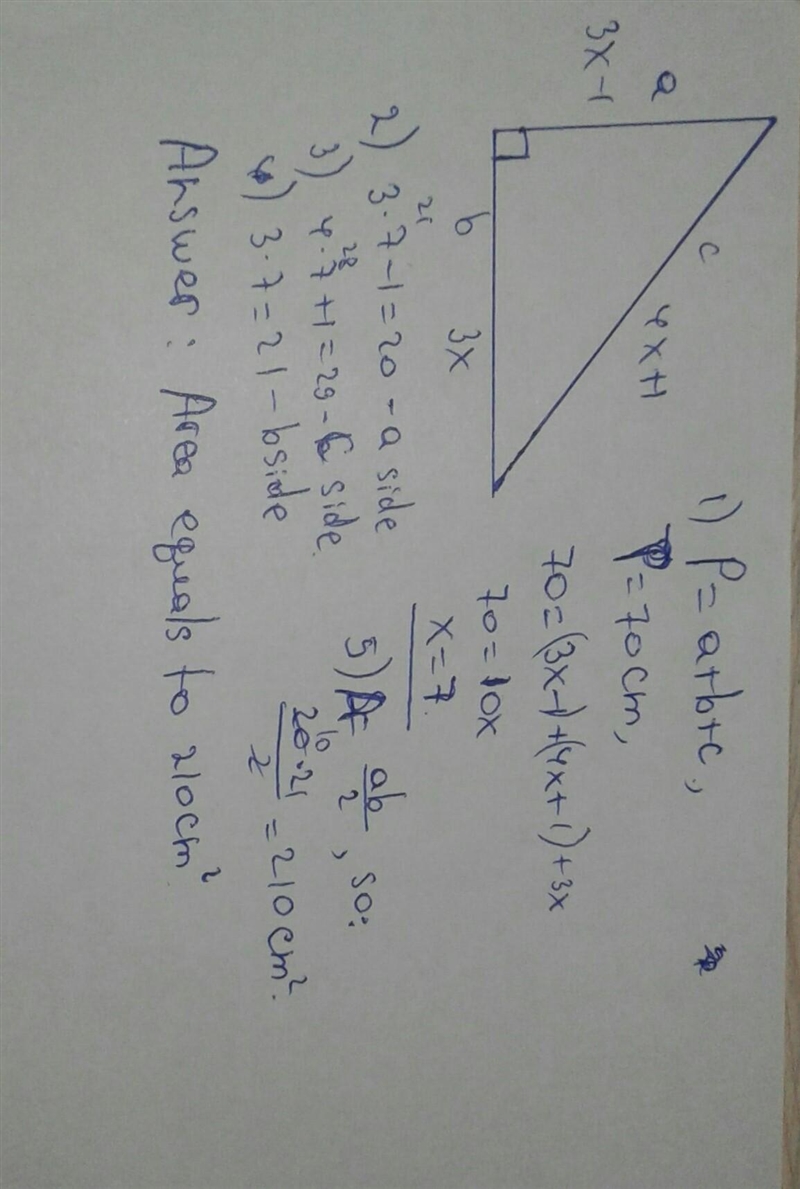 a
3x-1
c
4x+1
b
3x
1) P = a+b+c,
P = 70cm,
70=(3x-1)+(4x+1)+3x
70=10x
x=7.
2) 3·7-1=20 - a side
21
3) 4·7+1=29- c side
28
4) 3·7=21 - b side
5) A= ab/2, so:
20·21/2 = 210cm².
10
Answer: Area equals to 210cm².